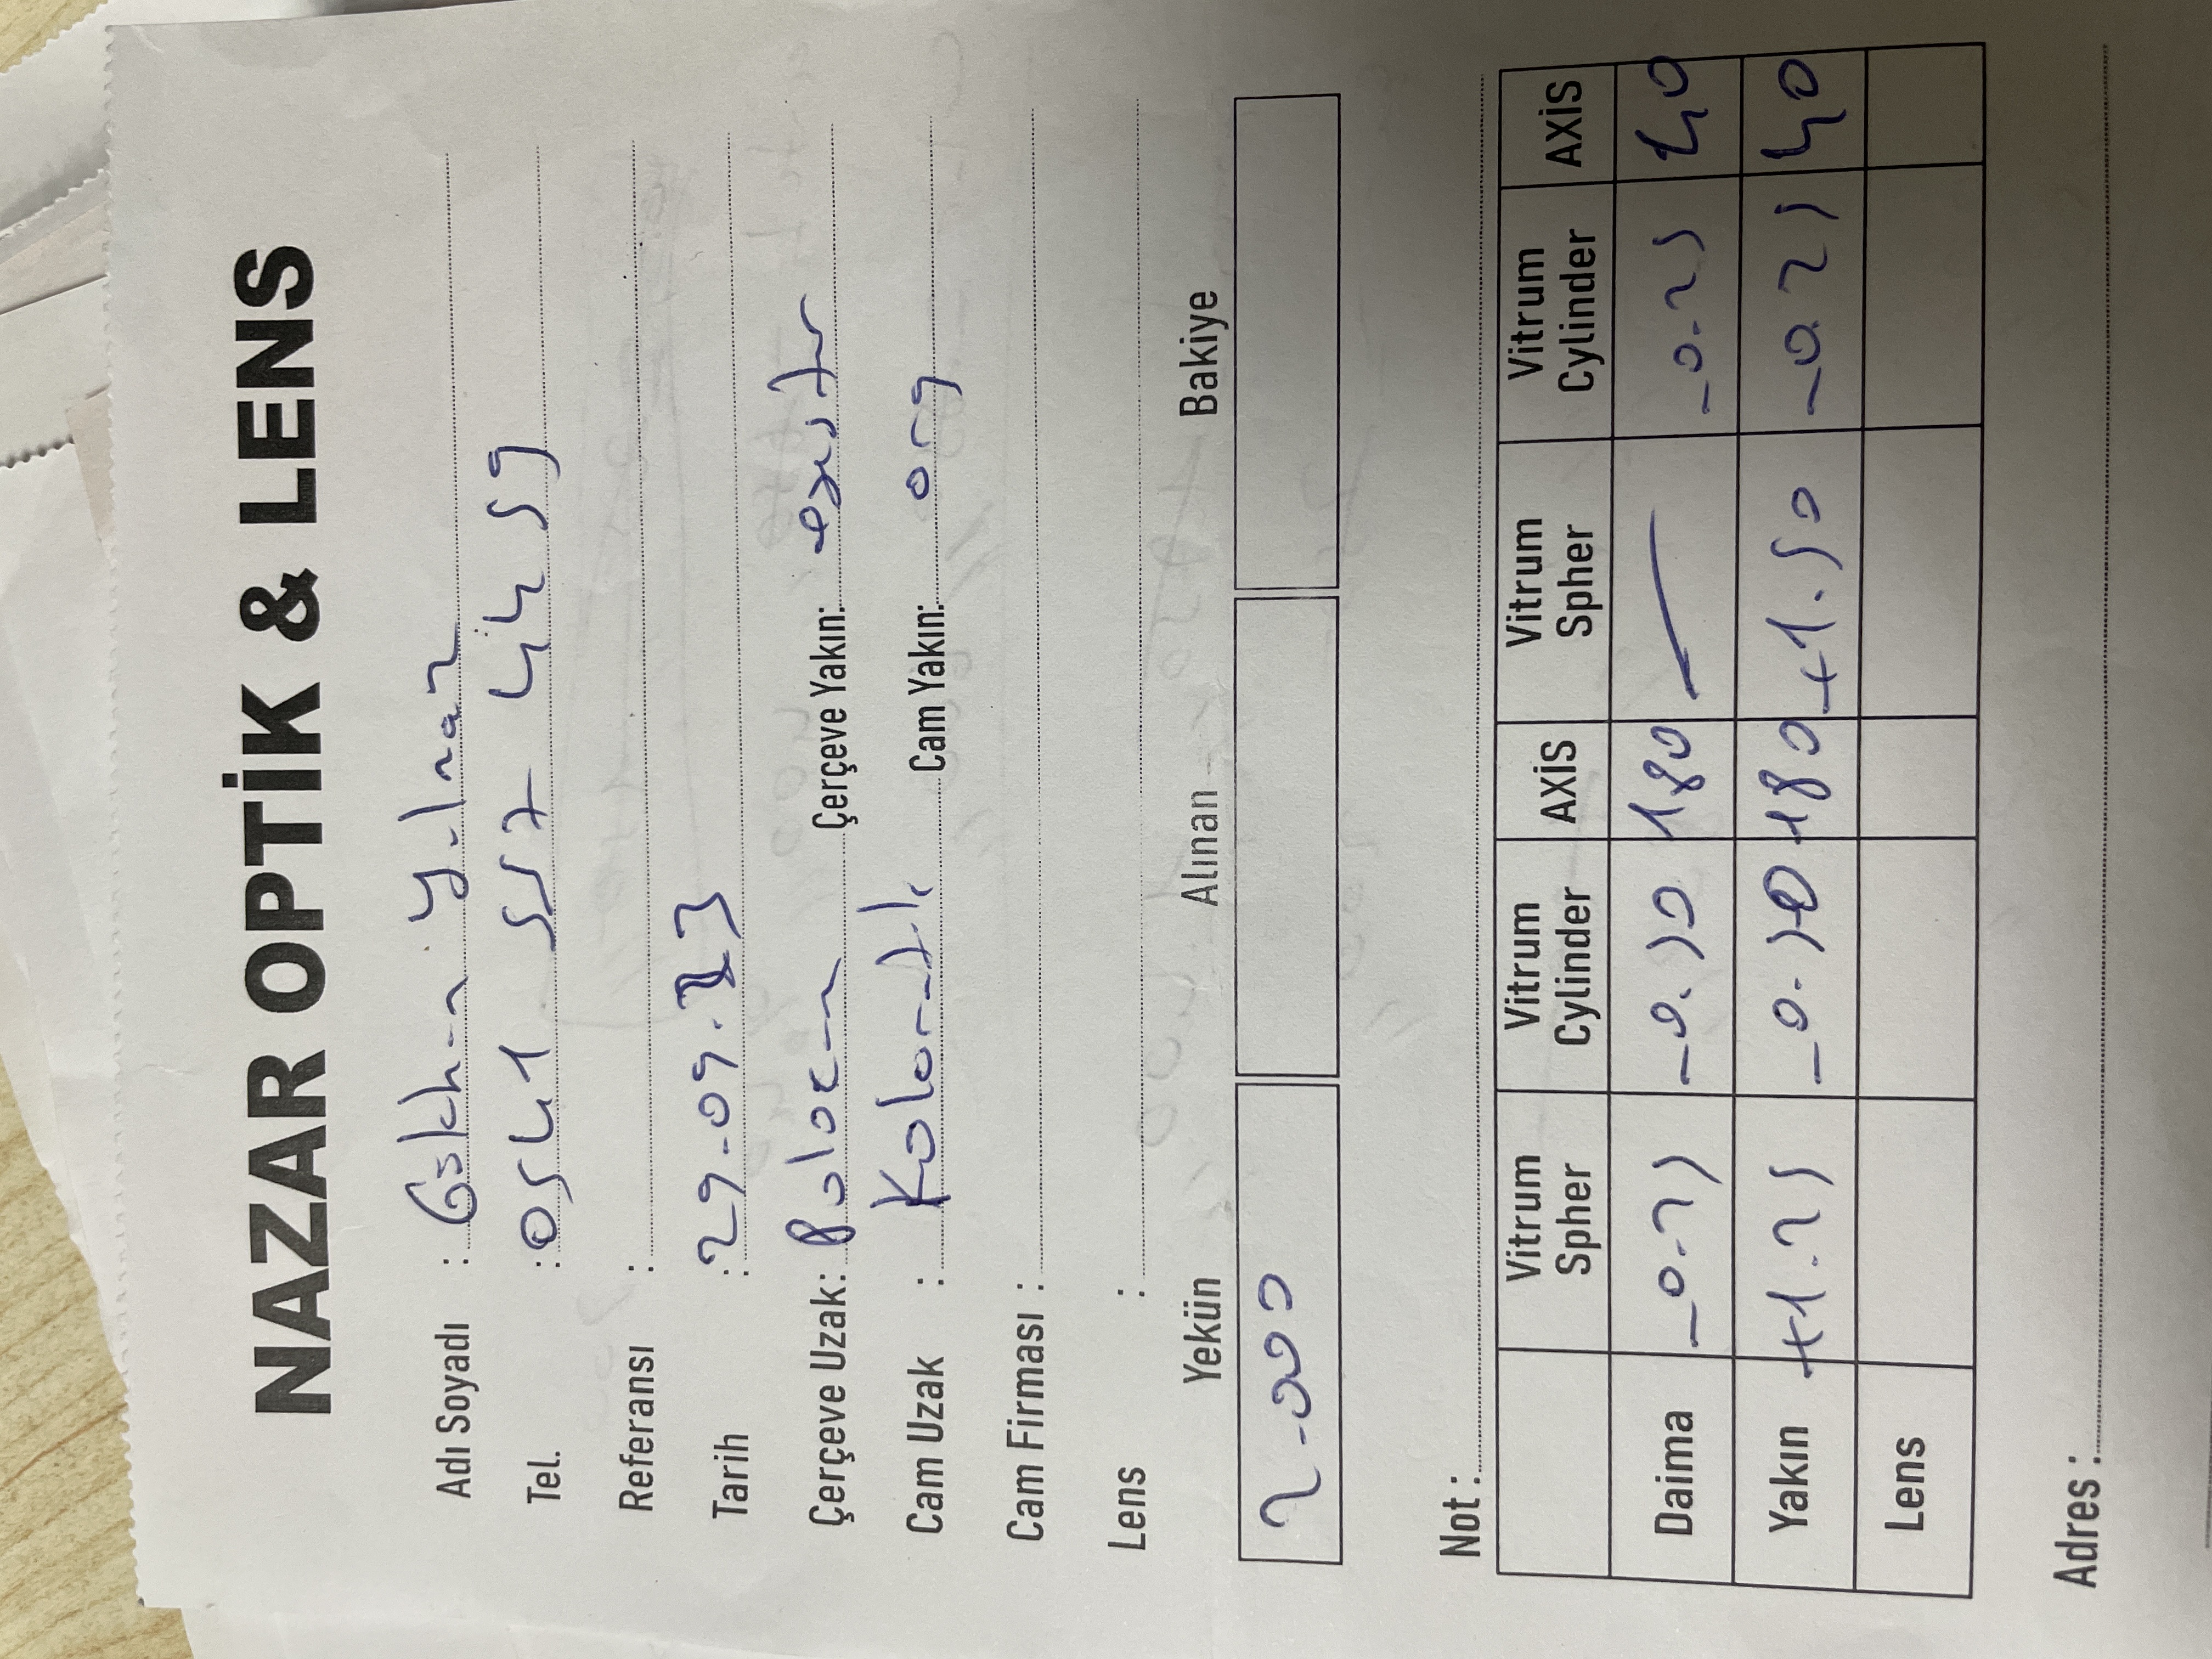 NAZAR OPTİK & LENS
Adı Soyadı : Gökhan Yılmaz
Tel. : 0541 557 44 59
Referansı :
Tarih : 29-09-23
Çerçeve Uzak: Çerçeve Yakın:
Cam Uzak : Kolormatik Cam Yakın: org
Cam Firması :
Lens :
Yekün Alınan Bakiye
2-000
Not :
Vitrum Spher Vitrum Cylinder AXİS Vitrum Spher Vitrum Cylinder AXİS
Daima -0.25 -0.50 180 — -0.25 40
Yakın +1.25 -0.50 180 +1.50 -0.25 40
Lens
Adres :